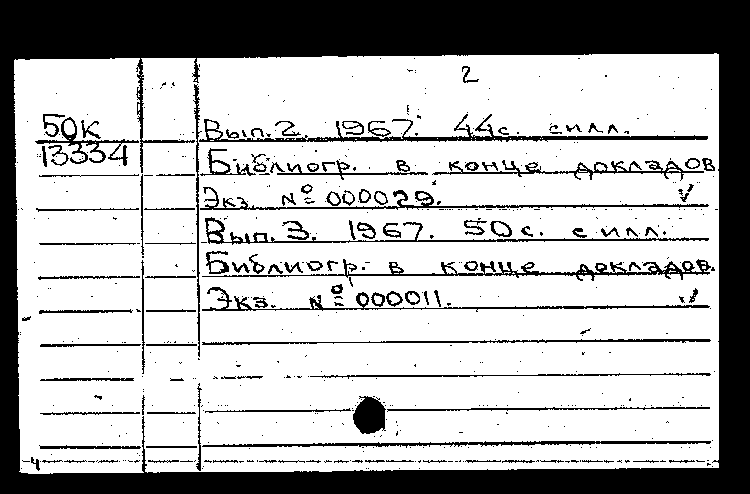 2
50К Вып.2. 1967. 44с. силл.
13334 Библиогр. в конце докладов.
Экз. № 000029. ✓
Вып. 3. 1967. 50с. силл.
Библиогр. в конце докладов.
Экз. № 000011. ✓
4